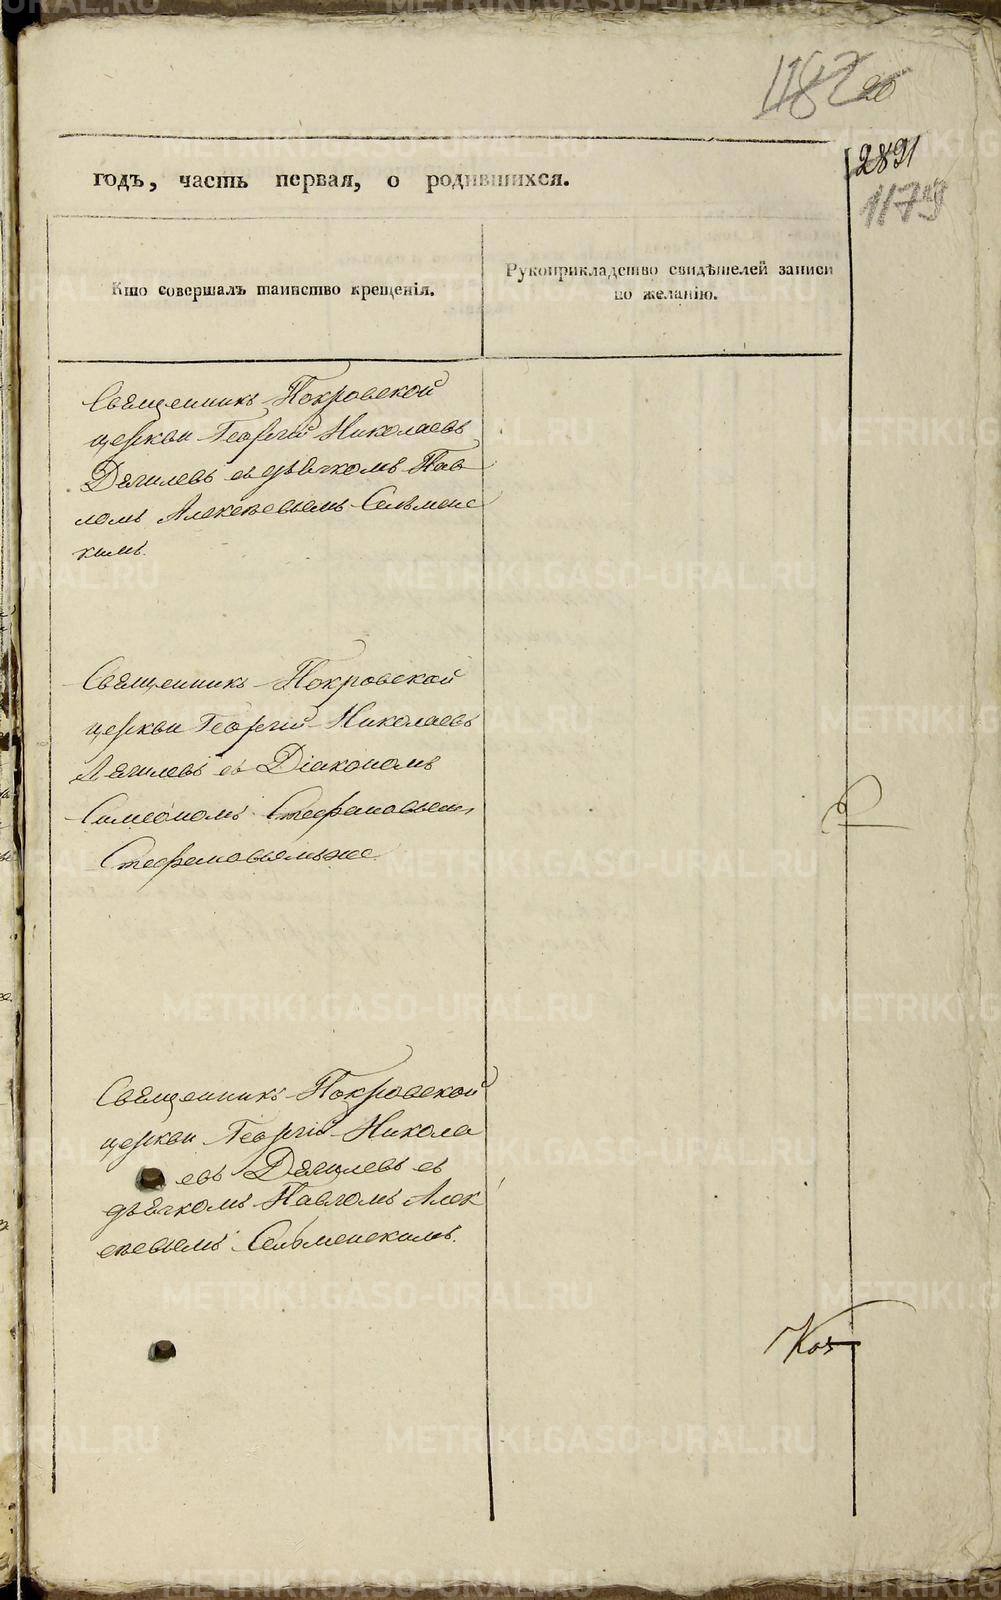 1182 20
2891
1179
годъ, часть первая, о родившихся.
Кто совершалъ таинство крещенія.
Рукоприкладство свидѣтелей записи
по желанію.
Священникъ Покровской
церкви Георгій Николаевъ
Дягилевъ съ дьячкомъ Пав
ломъ Алексѣевымъ Сельменс
кимъ.
Священникъ Покровской
церкви Георгій Николаевъ
Дягилевъ съ Діакономъ
Симеономъ Стефановымъ
Стефановымъ же
Священникъ Покровской
церкви Георгій Никола
евъ Дягилевъ съ
дьячкомъ Павломъ Алек
сѣевымъ Сельменскимъ.
METRIKI.GASO-URAL.RU